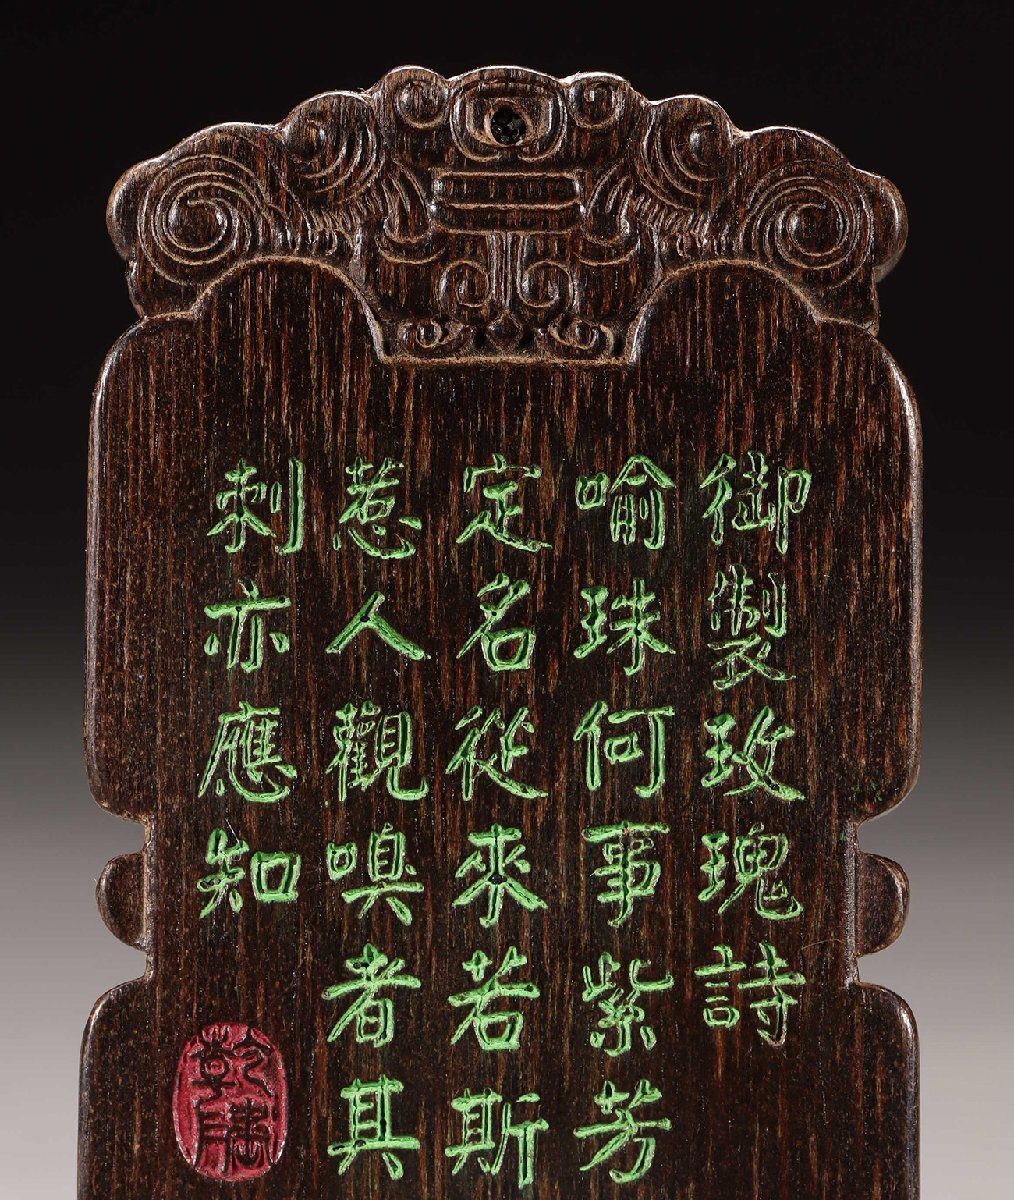 御製玫瑰詩
喻珠何事紫芳
定名從來若斯
惹人觀嗅者其
刺亦應知